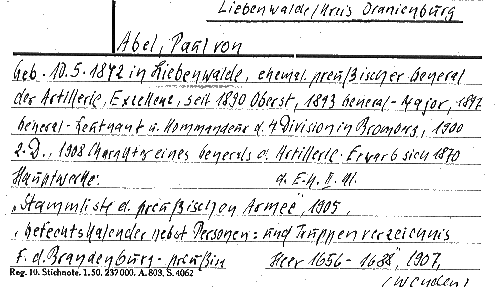 Liebenwalde/Kreis Oranienburg
Abel, Paul von
Geb. 10.5.1842 in Liebenwalde, ehemal. preußischer General
der Artillerie, Exzellenz, seit 1890 Oberst, 1893 General-Major, 1897
General-Leutnant u. Kommandeur d. 4 Division in Bromberg, 1900
z. D., 1908 Charakter eines Generals d. Artillerie. Erwarb sich 1870
Hauptwerke: d. E.K. II. Kl.
"Stammliste d. preußischen Armee", 1905,
"Gefechtskalender nebst Personen= und Truppenverzeichnis
f. d. Brandenburg-preußische Heer 1656-1688", 1907,
Reg. 10. Stichnote. 1. 50. 237000. A. 803, S. 4062